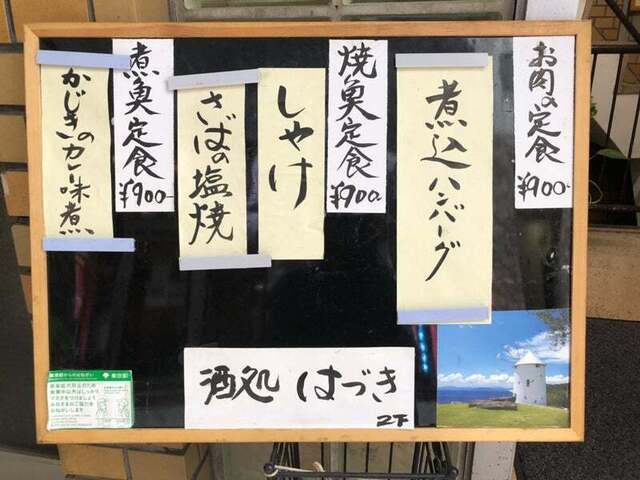 お肉の定食
¥900-
煮込ハンバーグ
焼魚定食
¥900
しゃけ
さばの塩焼
煮魚定食
¥900-
かじきのカレー味煮
酒処 はづき
2F